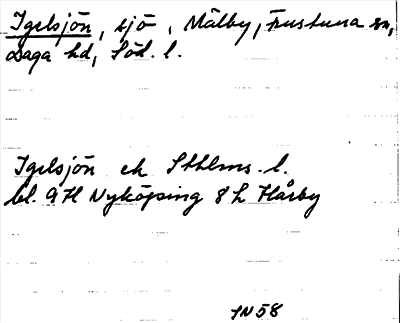 Igelsjön, sjö, Målby, Frustuna sn,
Daga hd, Söd. l.
Igelsjön ek Sthlms. l.
bl. 9H Nyköping 8h Hårby
IN58